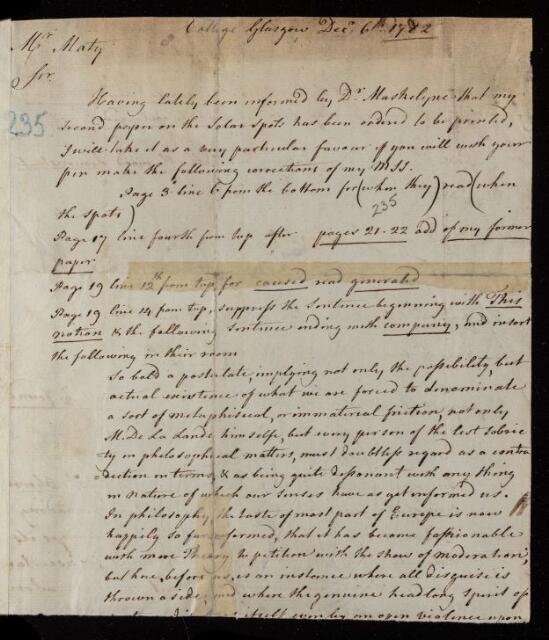 College Glasgow Decr. 6th. 1782
Mr Maty
Sir
Having lately been informed by Dr Maskelyne that my
235
second paper on the Solar Spots has been ordered to be printed,
I will take it as a very particular favour if you will with your
pen make the following corrections of my MSS.
Page 3 line 6 from the bottom for (when they) read (when
the spots)
235
Page 17 line fourth from top after pages 21-22 add of my former
paper
Page 19 line 12th from top, for caused read generated
Page 19 line 14 from top, suppress the sentence beginning with This
notion & the following sentence ending with company, and insert
the following in their room
So bold a postulate, implying not only the possibility, but
actual existence of what we are forced to denominate
a sort of metaphisical, or immaterial friction, not only
M. De La Lande himself, but every person of the least sobrie
ty in philosophical matters, must doubtless regard as a contra
diction in terms, & as being quite dissonant with any thing
in nature of which our senses have as yet informed us.
In philosophy, the taste of most part of Europe is now
happily so far reformed, that it has become fashionable
with mere Theory to petition with the show of moderation;
but here, before us, is an instance where all disguise is
thrown aside, and where the genuine headlong spirit of
itself even by an open violence upon